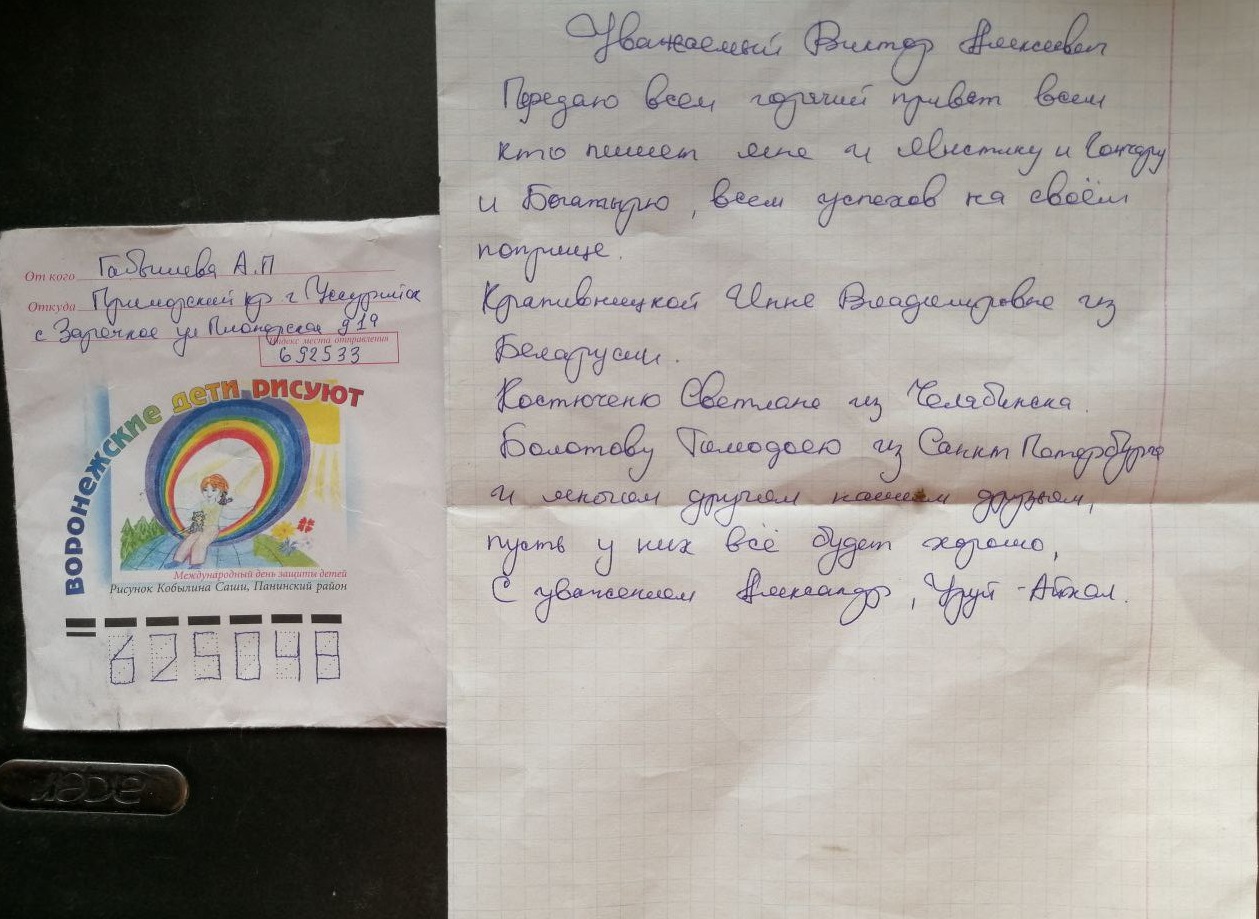 От кого Габышева А.П
Откуда Приморский кр г Уссурийск
с Заречное ул Пионерская д 19
Индекс места отправления
692533
ВОРОНЕЖСКИЕ ДЕТИ РИСУЮТ
Международный день защиты детей
Рисунок Кобылина Саши, Панинский район
625048
acer
Уважаемый Виктор Алексеевич
Передаю всем горячий привет всем
кто пишет мне и Мистику и
и Богатырю, всем успехов на своём
поприще.
Крапивницкой Инне Владимировне из
Беларусии.
Костюченко Светлане из Челябинска.
Болотову Тимофею из Санкт Петербурга
и многим другим нашим друзьям,
пусть у них всё будет хорошо,
С уважением Александр, Уруй-Айхал.